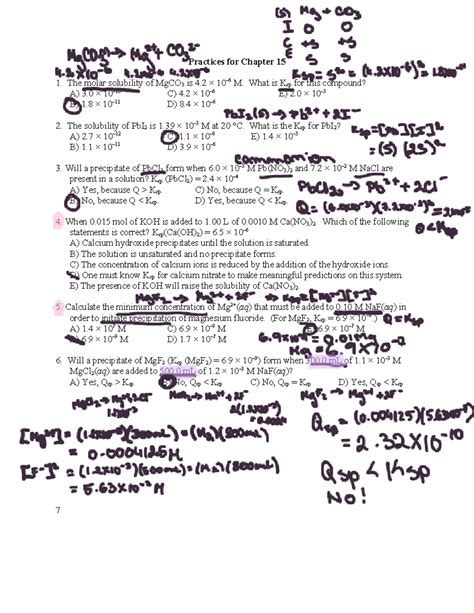 (s) Mg + CO3
I O O
C +S +S
E S S
Practices for Chapter 15
1. The molar solubility of MgCO3 is 4.2 × 10⁻⁶ M. What is Ksp for this compound?
A) 3.0 × 10 C) 4.2 × 10⁻⁶ E) 2.0 × 10⁻³
B) 1.8 × 10⁻¹¹ D) 8.4 × 10⁻⁶
PbI2(s) → Pb²⁺ + 2I⁻
2. The solubility of PbI2 is 1.39 × 10⁻³ M at 20 °C. What is the Ksp for PbI2?
A) 2.7 × 10⁻¹² C) 1.1 × 10⁻⁸ E) 1.4 × 10⁻³
B) 1.1 × 10⁻¹¹ D) 3.9 × 10⁻⁶
= (S) (2S)²
common ion
3. Will a precipitate of PbCl2 form when 6.0 × 10⁻⁵ M Pb(NO3)2 and 7.2 × 10⁻² M NaCl are
present in a solution? Ksp (PbCl2) = 2.4 × 10⁻⁴
A) Yes, because Q > Ksp C) No, because Q = Ksp
B) No, because Q < Ksp D) Yes, because Q < Ksp
PbCl2 → Pb²⁺ + 2Cl⁻
Q < Ksp
4. When 0.015 mol of KOH is added to 1.00 L of 0.0010 M Ca(NO3)2. Which of the following
statements is correct? Ksp(Ca(OH)2) = 6.5 × 10⁻⁶
A) Calcium hydroxide precipitates until the solution is saturated.
B) The solution is unsaturated and no precipitate forms.
C) The concentration of calcium ions is reduced by the addition of the hydroxide ions.
D) One must know Ksp for calcium nitrate to make meaningful predictions on this system.
E) The presence of KOH will raise the solubility of Ca(NO3)2.
MgF2 → Mg²⁺ + 2F⁻
5. Calculate the minimum concentration of Mg²⁺(aq) that must be added to 0.10 M NaF(aq) in
order to initiate precipitation of magnesium fluoride. (For MgF2, Ksp = 6.9 × 10⁻⁹.)
Q = Ksp
A) 1.4 × 10⁷ M C) 6.9 × 10⁻⁸ M E) 6.9 × 10⁻⁹ M
B) 6.9 × 10⁻⁷ M D) 1.7 × 10⁻⁷ M
6. Will a precipitate of MgF2 (Ksp (MgF2) = 6.9 × 10⁻⁹) form when 300.0 mL of 1.1 × 10⁻³ M
MgCl2(aq) are added to 500.0 mL of 1.2 × 10⁻³ M NaF(aq)?
A) Yes, Qsp > Ksp B) No, Qsp < Ksp C) No, Qsp = Ksp D) Yes, Qsp < Ksp
= 0.0004125M
= 5.63×10⁻³
= 2.32×10⁻¹⁰
Qsp < Ksp
NO!
7